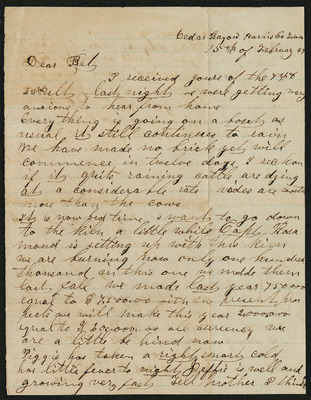 Cedar Bayou Harris Co Texas
15th of Februry
Dear Bet
I received yours of the
last night we were getting very
anxious to hear from home
Everything is going on a bout as
usual it still continues to rain
We have made no brick yet will
commence in twelve days I reckon
if it quits raining cattle are dying
at a considerable rate
more than the cows
it is now bed time I want to go down
to the kiln a little while Capt. Rosa
mond is setting up with his kiln
we are burning now only one hundred
thousand in this one we molde them
last fall we made last year 750000
equal to $ with the present pros
pects we will make this year 2000000
equal to $ us all curency we
are a little be hind now
Piggie has taken a right smart cold
has little fever to night Jeffie is well and
growing very fast Tell mother I think